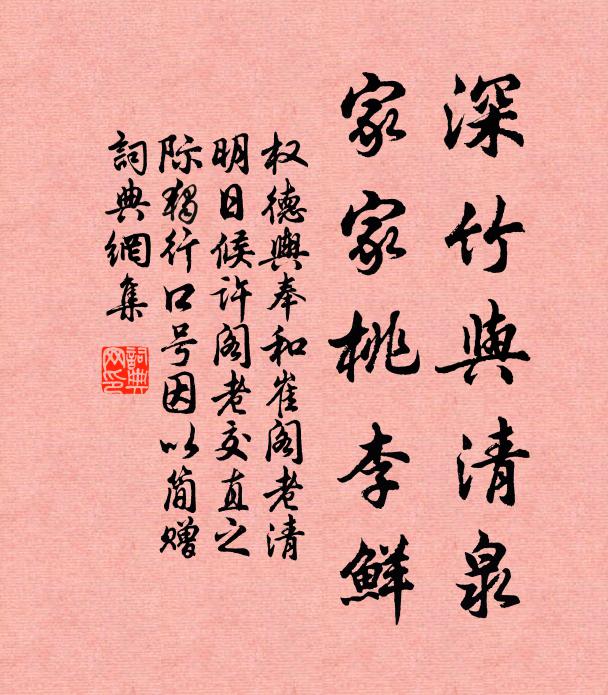 深竹與清泉
家家桃李鮮
权德輿奉和崔阁老清
明日候许阁老交直之
际獨行口号因以简赠
詞典網集
詞典網印